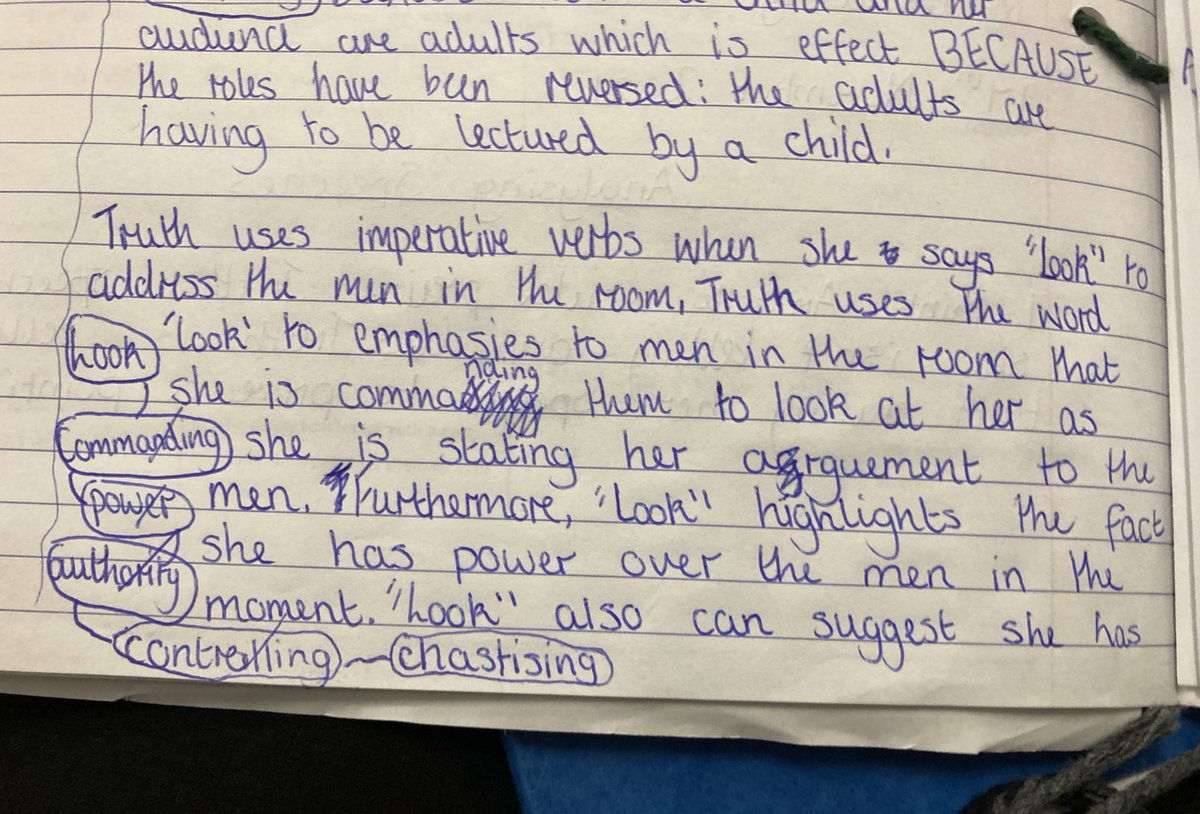 audiencd are adults which is effect BECAUSE
the roles have been reversed: the adults are
having to be lectured by a child.
Truth uses imperative verbs when she says "look" to
address the men in the room, Truth uses the word
look 'look' to emphasies to men in the room that
she is commanding them to look at her as
commanding she is stating her arguement to the
power men. Furthermore, "Look" highlights the fact
authority she has power over the men in the
moment. "Look" also can suggest she has
controlling chastising